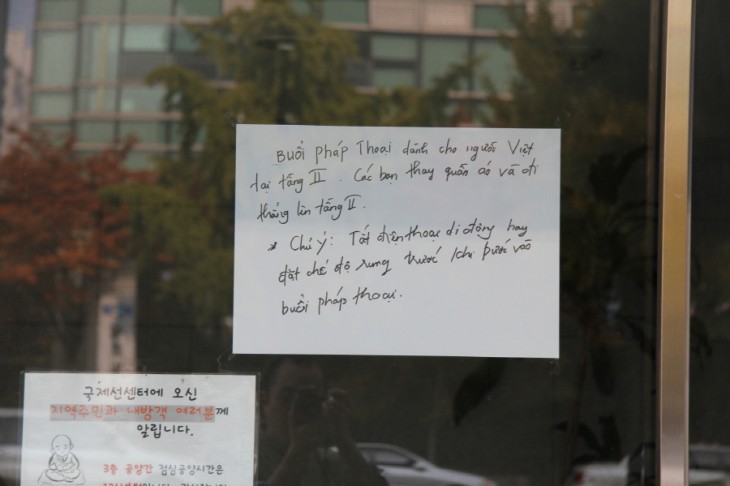 Buổi pháp Thoại dành cho người Việt
tại tầng II. Các bạn thay quần áo và đi
thẳng lên tầng II.
* Chú ý: Tắt điện thoại di động hay
đặt chế độ rung trước khi bước vào
buổi pháp thoại.
국제선센터에 오신
지역주민과 내방객 여러분께
알립니다.
3층 공양간 점심공양시간은